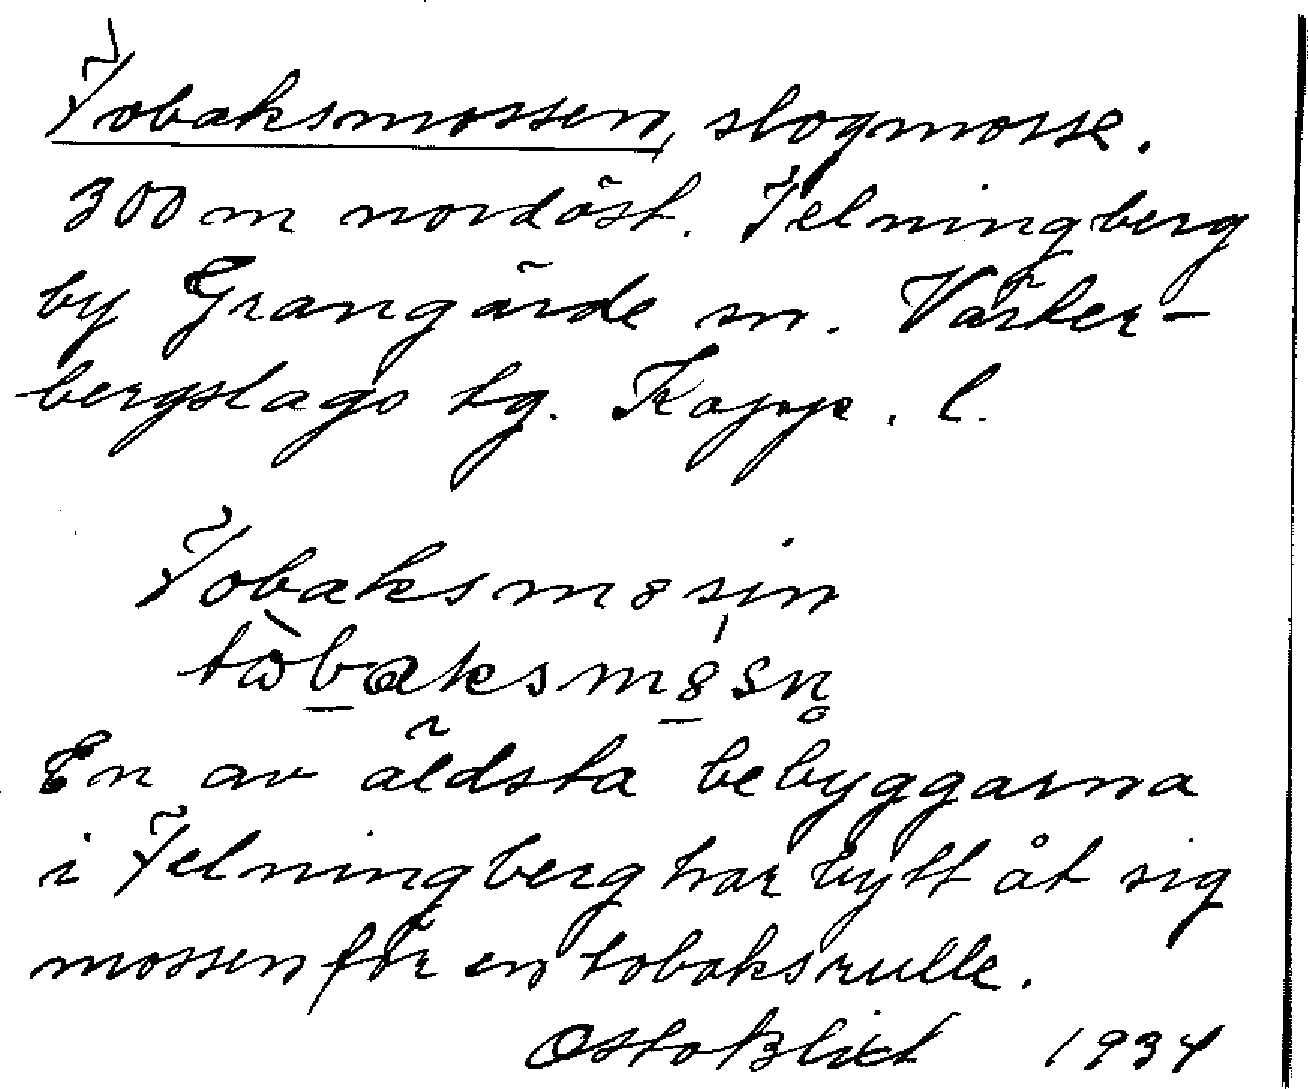 Tobaksmossen, slogmosse.
300 m nordöst. Telningberg
by Grangärde sn. Väster-
bergslags tg. Kopp. l.
Tobaksm8sin
tòbaksm8sn̥
En av äldsta bebyggarna
i Telningberg har bytt åt sig
mossen för en tobaksrulle.
Otto Blixt 1934